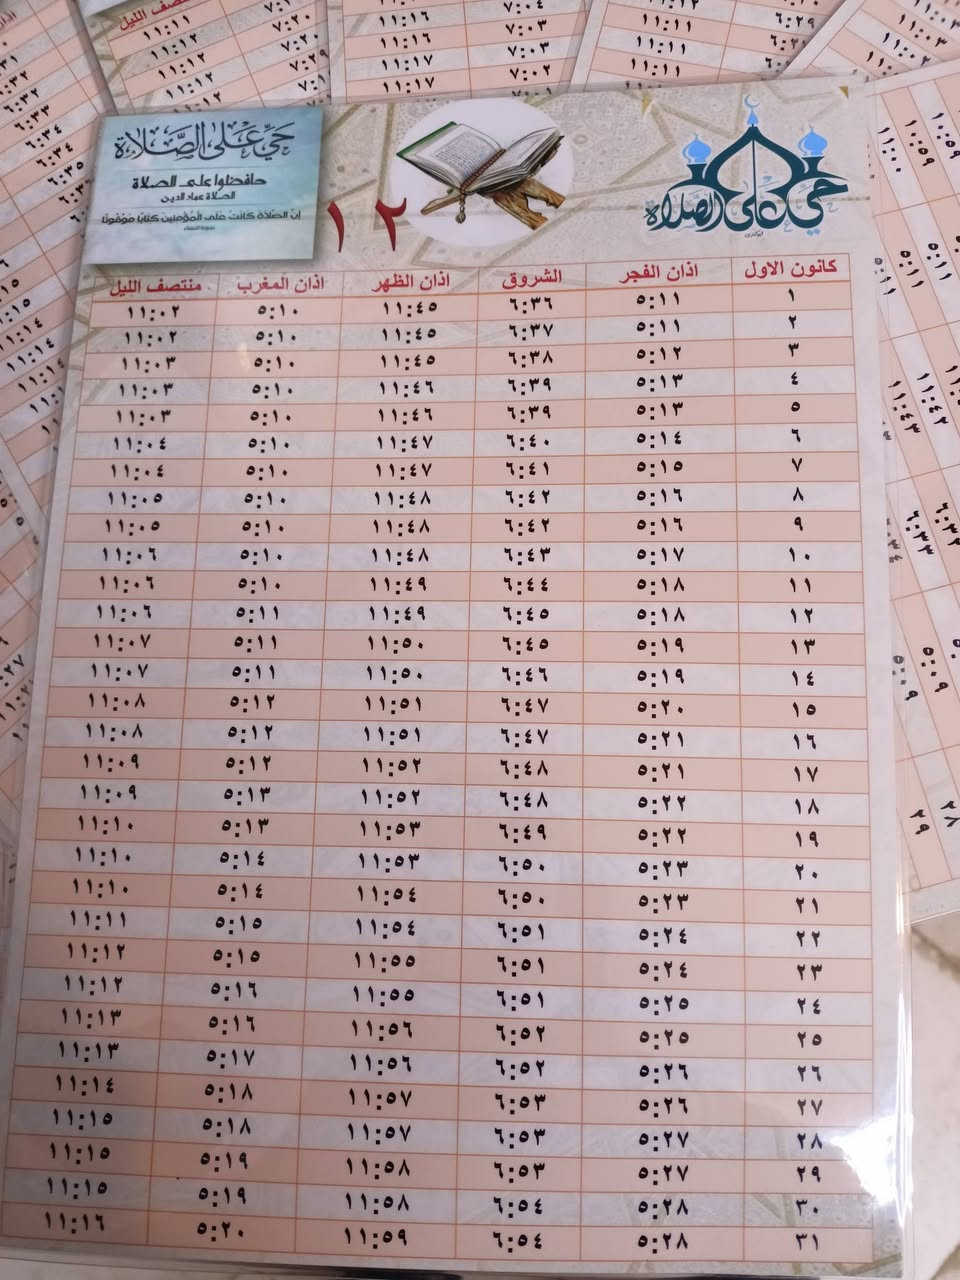 حي على الصلاة
حافظوا على الصلاة
الصلاة عماد الدين
إن الصلاة كانت على المؤمنين كتابا موقوتا
١٢
حي على الصلاة
كانون الاول اذان الفجر الشروق اذان الظهر اذان المغرب منتصف الليل
١ ٥:١١ ٦:٣٦ ١١:٤٥ ٥:١٠ ١١:٠٢
٢ ٥:١١ ٦:٣٧ ١١:٤٥ ٥:١٠ ١١:٠٢
٣ ٥:١٢ ٦:٣٨ ١١:٤٥ ٥:١٠ ١١:٠٣
٤ ٥:١٣ ٦:٣٩ ١١:٤٦ ٥:١٠ ١١:٠٣
٥ ٥:١٣ ٦:٣٩ ١١:٤٦ ٥:١٠ ١١:٠٣
٦ ٥:١٤ ٦:٤٠ ١١:٤٧ ٥:١٠ ١١:٠٤
٧ ٥:١٥ ٦:٤١ ١١:٤٧ ٥:١٠ ١١:٠٤
٨ ٥:١٦ ٦:٤٢ ١١:٤٨ ٥:١٠ ١١:٠٥
٩ ٥:١٦ ٦:٤٢ ١١:٤٨ ٥:١٠ ١١:٠٥
١٠ ٥:١٧ ٦:٤٣ ١١:٤٨ ٥:١٠ ١١:٠٦
١١ ٥:١٨ ٦:٤٤ ١١:٤٩ ٥:١٠ ١١:٠٦
١٢ ٥:١٨ ٦:٤٥ ١١:٤٩ ٥:١١ ١١:٠٦
١٣ ٥:١٩ ٦:٤٥ ١١:٥٠ ٥:١١ ١١:٠٧
١٤ ٥:١٩ ٦:٤٦ ١١:٥٠ ٥:١١ ١١:٠٧
١٥ ٥:٢٠ ٦:٤٧ ١١:٥١ ٥:١٢ ١١:٠٨
١٦ ٥:٢١ ٦:٤٧ ١١:٥١ ٥:١٢ ١١:٠٨
١٧ ٥:٢١ ٦:٤٨ ١١:٥٢ ٥:١٢ ١١:٠٩
١٨ ٥:٢٢ ٦:٤٨ ١١:٥٢ ٥:١٣ ١١:٠٩
١٩ ٥:٢٢ ٦:٤٩ ١١:٥٣ ٥:١٣ ١١:١٠
٢٠ ٥:٢٣ ٦:٥٠ ١١:٥٣ ٥:١٤ ١١:١٠
٢١ ٥:٢٣ ٦:٥٠ ١١:٥٤ ٥:١٤ ١١:١٠
٢٢ ٥:٢٤ ٦:٥١ ١١:٥٤ ٥:١٥ ١١:١١
٢٣ ٥:٢٤ ٦:٥١ ١١:٥٥ ٥:١٥ ١١:١٢
٢٤ ٥:٢٥ ٦:٥١ ١١:٥٥ ٥:١٦ ١١:١٢
٢٥ ٥:٢٥ ٦:٥٢ ١١:٥٦ ٥:١٦ ١١:١٣
٢٦ ٥:٢٦ ٦:٥٢ ١١:٥٦ ٥:١٧ ١١:١٣
٢٧ ٥:٢٦ ٦:٥٣ ١١:٥٧ ٥:١٨ ١١:١٤
٢٨ ٥:٢٧ ٦:٥٣ ١١:٥٧ ٥:١٨ ١١:١٥
٢٩ ٥:٢٧ ٦:٥٣ ١١:٥٨ ٥:١٩ ١١:١٥
٣٠ ٥:٢٨ ٦:٥٤ ١١:٥٨ ٥:١٩ ١١:١٥
٣١ ٥:٢٨ ٦:٥٤ ١١:٥٩ ٥:٢٠ ١١:١٦